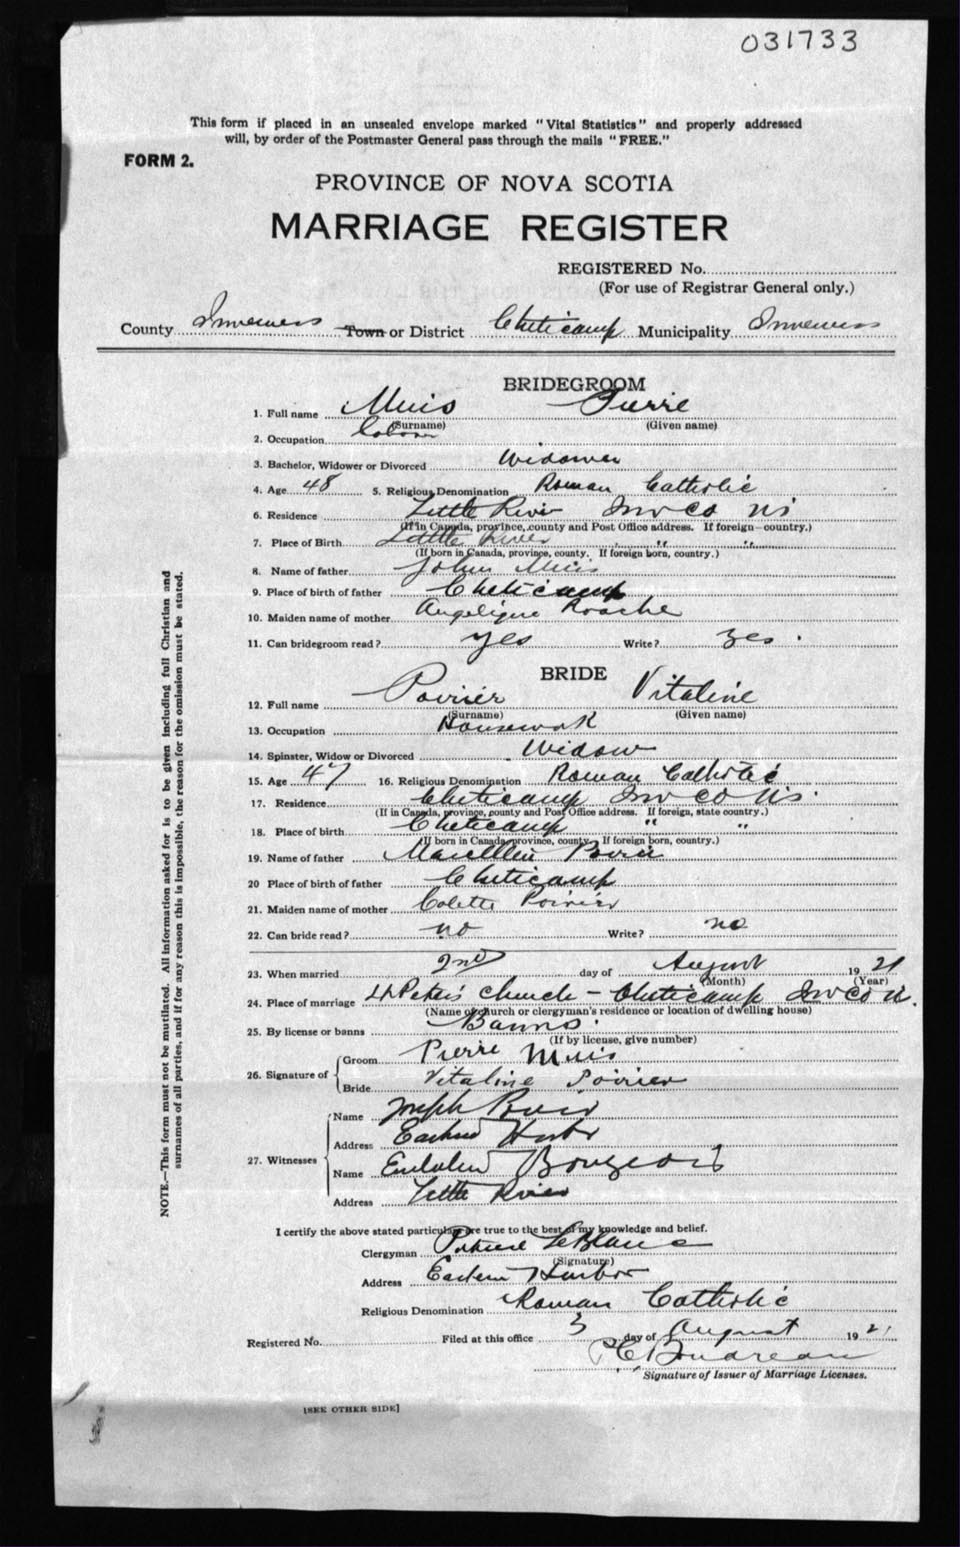 031733
This form if placed in an unsealed envelope marked "Vital Statistics" and properly addressed
will, by order of the Postmaster General pass through the mails "FREE."
FORM 2.
PROVINCE OF NOVA SCOTIA
MARRIAGE REGISTER
REGISTERED No.
(For use of Registrar General only.)
County Inverness Town or District Cheticamp Municipality Inverness
BRIDEGROOM
1. Full name Muis Pierre
(Surname) (Given name)
2. Occupation
3. Bachelor, Widower or Divorced Widower
4. Age 48 5. Religious Denomination Roman Catholic
6. Residence Little River Inv Co NS
(If in Canada, province, county and Post Office address. If foreign—country.)
7. Place of Birth Little River " "
(If born in Canada, province, county. If foreign born, country.)
8. Name of father John Muis
9. Place of birth of father Cheticamp
10. Maiden name of mother Angelique Roache
11. Can bridegroom read? yes Write? yes.
BRIDE
12. Full name Poirier Vitaline
(Surname) (Given name)
13. Occupation Housework
14. Spinster, Widow or Divorced Widow
15. Age 47 16. Religious Denomination Roman Catholic
17. Residence Cheticamp Inv Co NS.
(If in Canada, province, county and Post Office address. If foreign, state country.)
18. Place of birth Cheticamp " "
(If born in Canada province, county. If foreign born, country.)
19. Name of father
20 Place of birth of father Cheticamp
21. Maiden name of mother Colette Poirier
22. Can bride read? no Write? no
23. When married 2nd day of August 1921
(Month) (Year)
24. Place of marriage St Peter's Church - Cheticamp Inv Co N.
(Name of church or clergyman's residence or location of dwelling house)
25. By license or banns Banns.
(If by license, give number)
26. Signature of
Groom Pierre Muis
Bride Vitaline Poirier
27. Witnesses
Name Joseph
Address Eastern Harbor
Name
Address Little River
I certify the above stated particulars are true to the best of my knowledge and belief.
Clergyman LeBlanc
(Signature)
Address Eastern Harbor
Religious Denomination Roman Catholic
Registered No. Filed at this office 3 day of August 1921
P.C. Boudreau
Signature of Issuer of Marriage Licenses.
[SEE OTHER SIDE]
NOTE.—This form must not be mutilated. All information asked for is to be given including full Christian and
surnames of all parties, and if for any reason this is impossible, the reason for the omission must be stated.